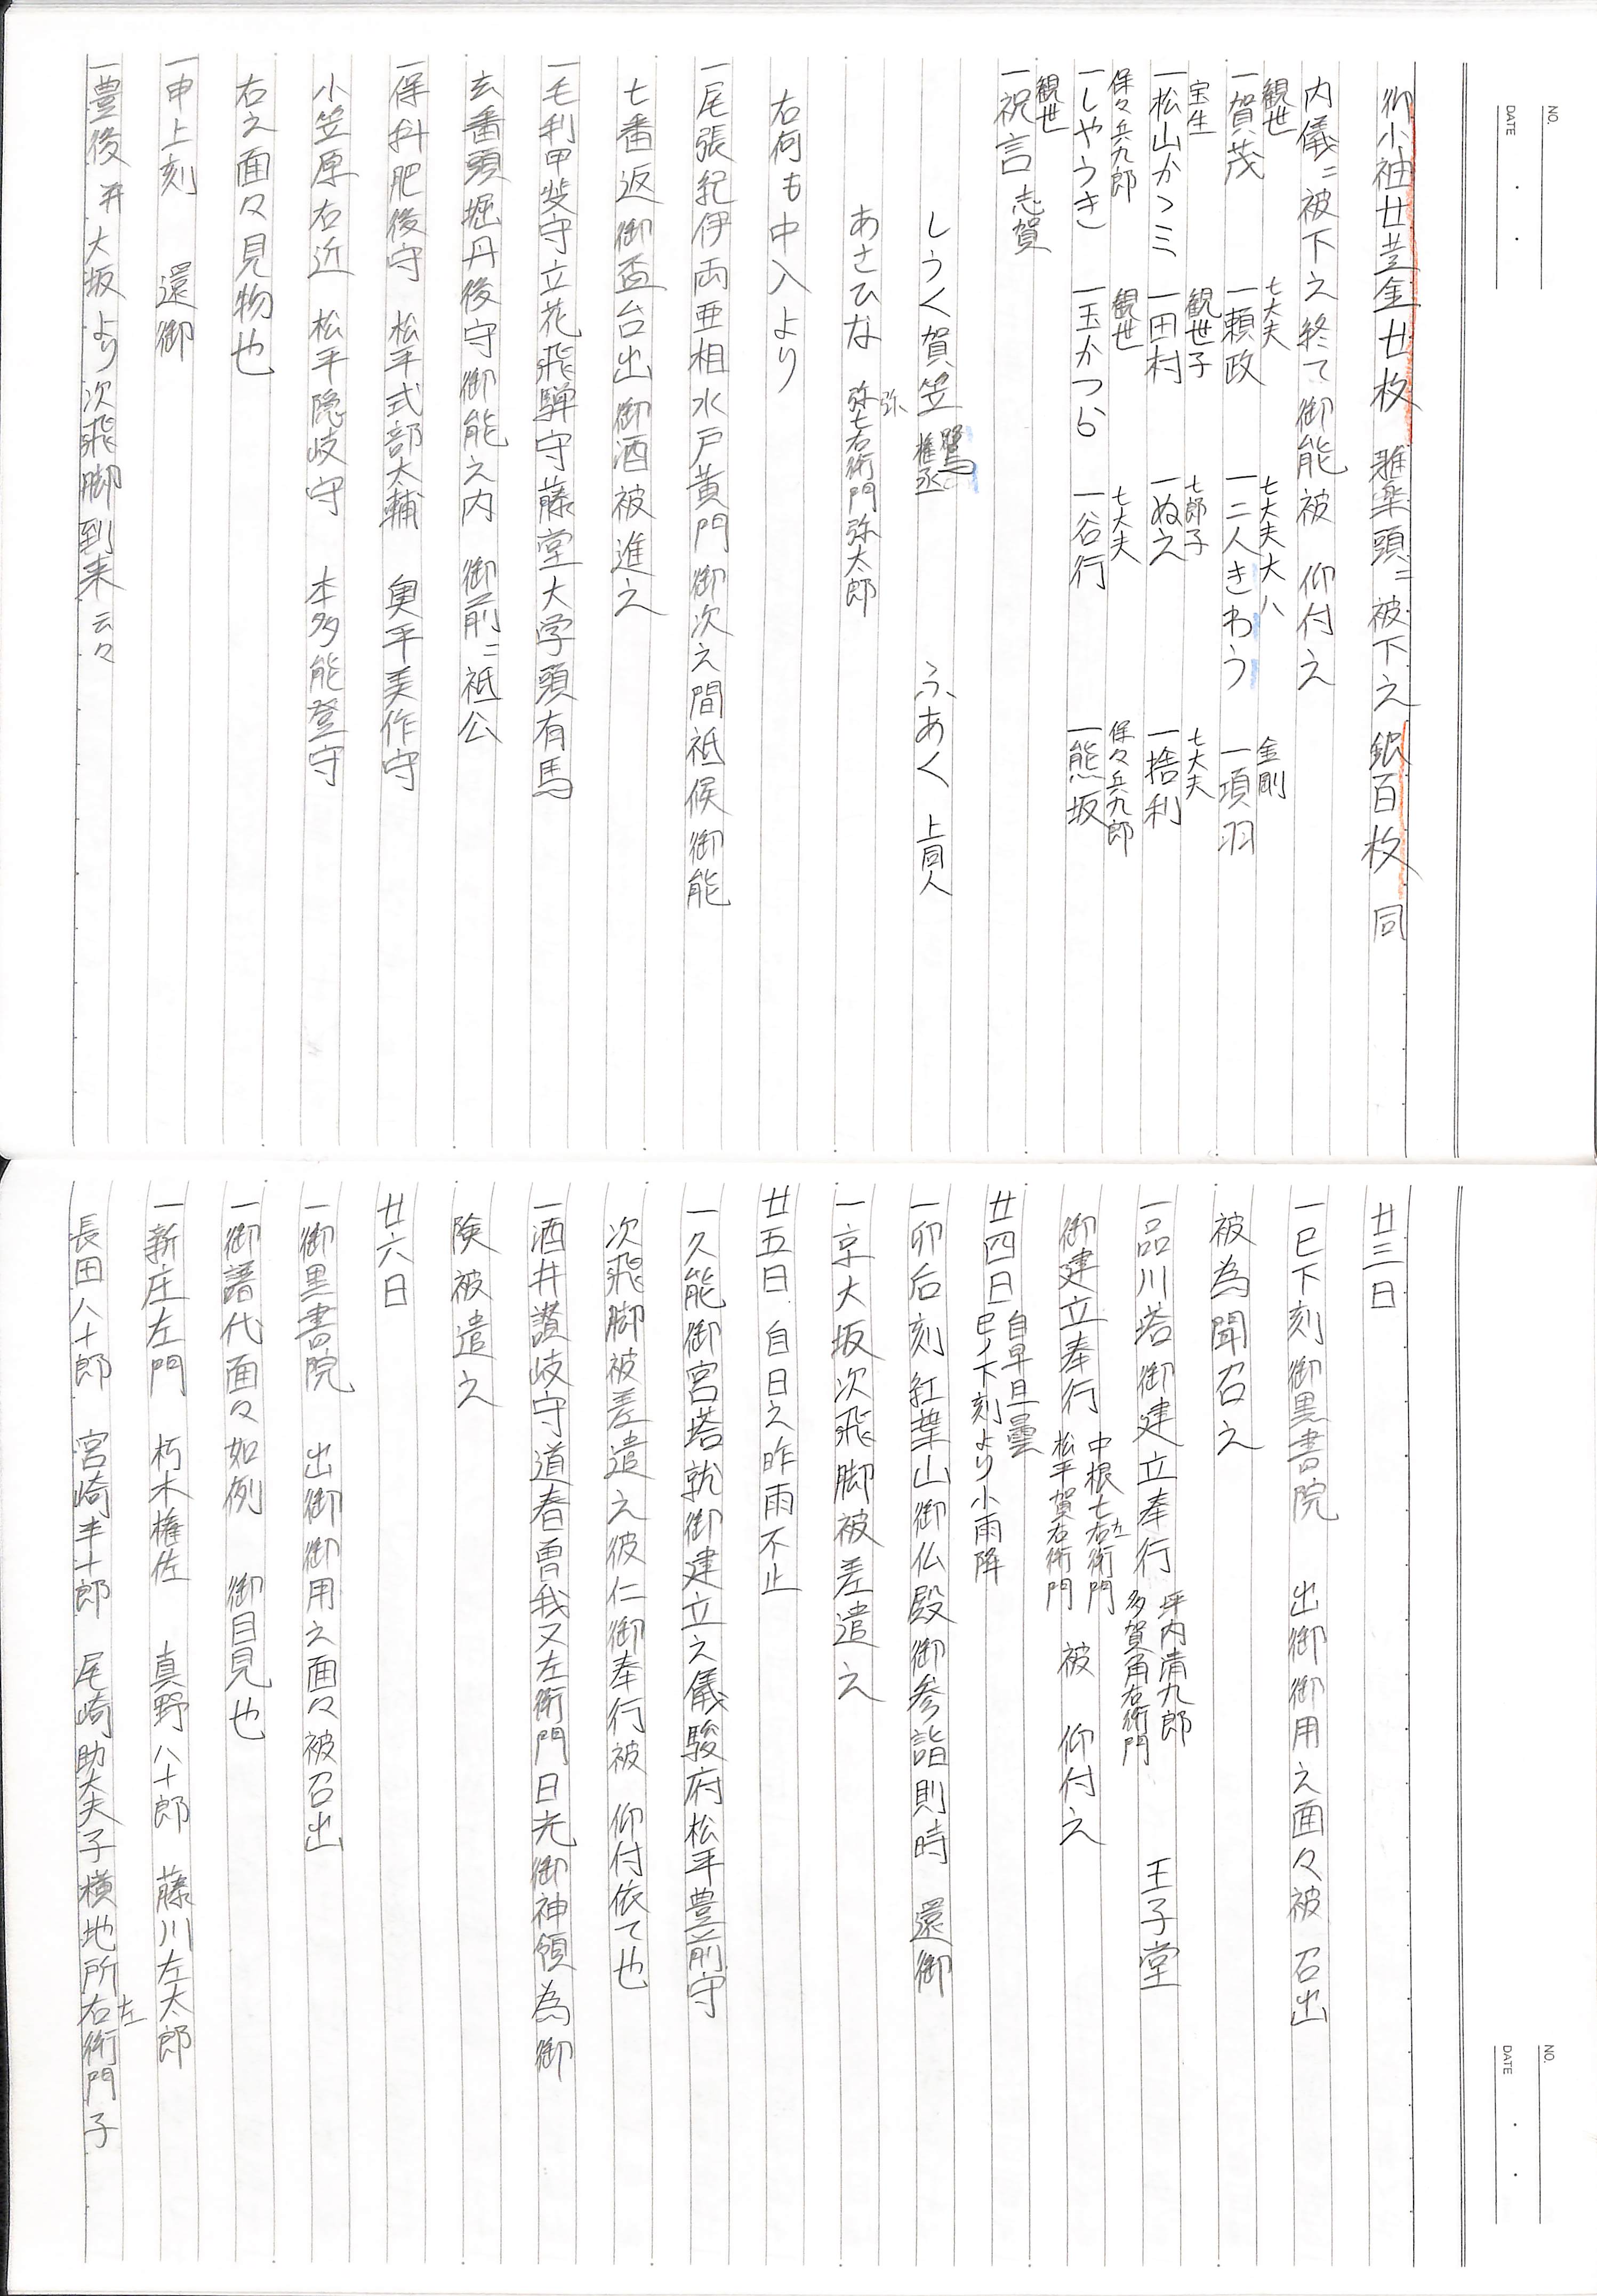 NO.
DATE
御小袖廿并金廿枚 雅楽頭ニ被下之 銀百枚 同
内儀ニ被下之終て御能被 仰付之
観世 七大夫 七大夫大八 金剛
一賀茂 一頼政 一二人きわう 一項羽
宝生 観世子 七郎子 七大夫
一松山かゝミ 一田村 一ぬえ 一捨利
保々兵九郎 観世 七大夫 保々兵九郎
一しやうき 一玉かつら 一谷行 一熊坂
観世
一祝言 志賀
しうく賀笠 鷺権丞 ふあく 上同人
あさひな 弥七右衛門 弥太郎
弥
右何も中入より
一尾張紀伊両亜相水戸黄門御次之間祗候御能
七番返御盃台出御酒被進之
一毛利甲斐守立花飛騨守藤堂大学頭有馬
玄番頭堀丹後守御能之内 御前ニ祗公
一保科肥後守 松平式部太輔 奥平美作守
小笠原右近 松平隠岐守 本多能登守
右之面々見物也
一申上刻 還御
一豊後并大坂より次飛脚到来云々
NO.
DATE
廿三日
一巳下刻御黒書院 出御御用之面々被 召出
被為聞召之
一品川塔御建立奉行 坪内清九郎 多賀角右衛門 王子堂
御建立奉行 中根七右衛門 松平賀右衛門 被 仰付之
左
廿四日 自早旦曇 巳ノ下刻より小雨降
一卯后刻紅葉山御仏殿御参詣則時 還御
一京大坂次飛脚被差遣之
廿五日 自日之昨雨不止
一久能御宮塔就御建立之儀駿府松平豊前守
次飛脚被差遣之彼仁御奉行被 仰付依て也
一酒井讃岐守道春曽我又左衛門日光御神領為御
険被遣之
廿六日
一御黒書院 出御御用之面々被召出
一御譜代面々如例 御目見也
一新庄左門 朽木権佐 真野八十郎 藤川左太郎
長田八十郎 宮崎半十郎 尾崎助大夫子横地所右衛門子
左